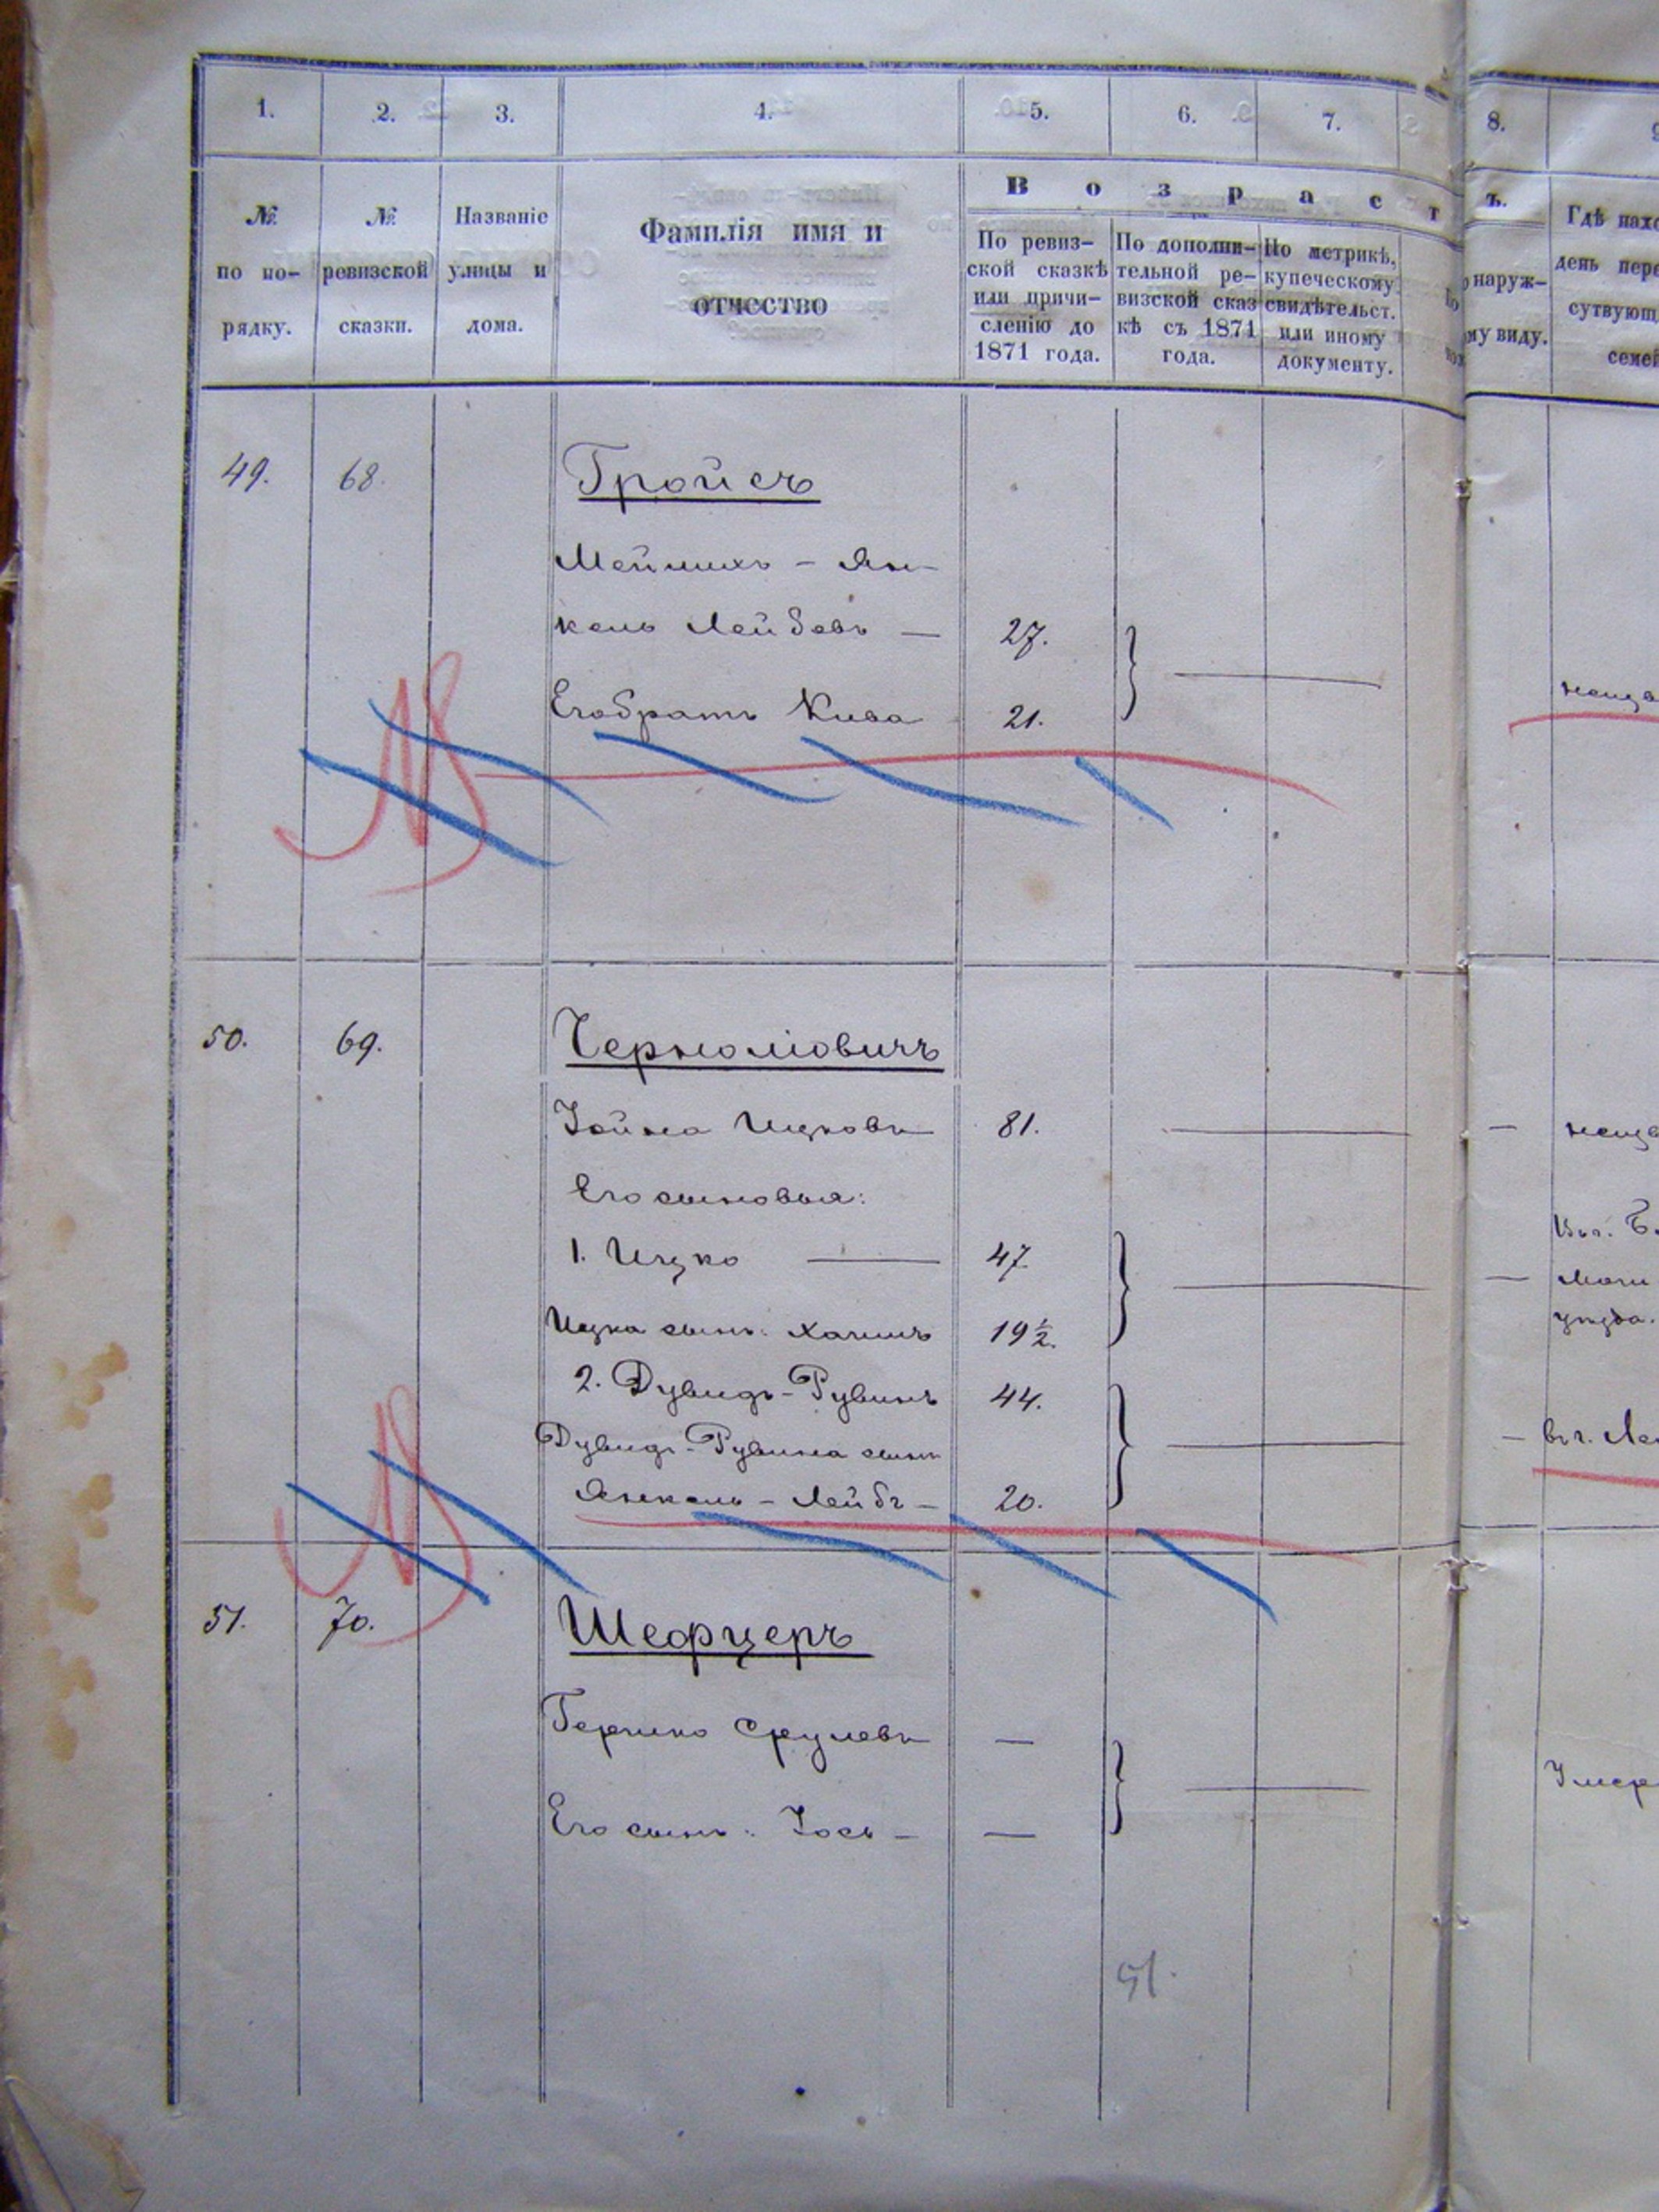 1. 2. 3. 4. 5. 6. 7. 8.
№ по по-рядку.
№ ревизской сказки.
Названіе улицы и дома.
Фамилія имя и отчество
Возраст ъ.
По ревиз-
ской сказкѣ
или причи-
сленію до
1871 года.
По дополни-
тельной ре-
визской сказ
кѣ съ 1871
года.
По метрикѣ,
купеческому
свидѣтельст.
или иному
документу.
наруж-
му виду.
Гдѣ
день
49. 68. Гройсъ
Ян-
кель Лейбовъ — 27.
Его братъ Кива 21.
50. 69.
Ицковъ 81.
Его сыновья:
1. Ицко — 47
Ицка сынъ: Хаимъ 19½.
2. Дувидъ-Рувинъ 44.
Дувидъ-Рувина сынъ
Янкель-Лейбъ — 20.
51. 70. Шефцеръ
Гершко Срулевъ —
Его сынъ: Іось — —
51.